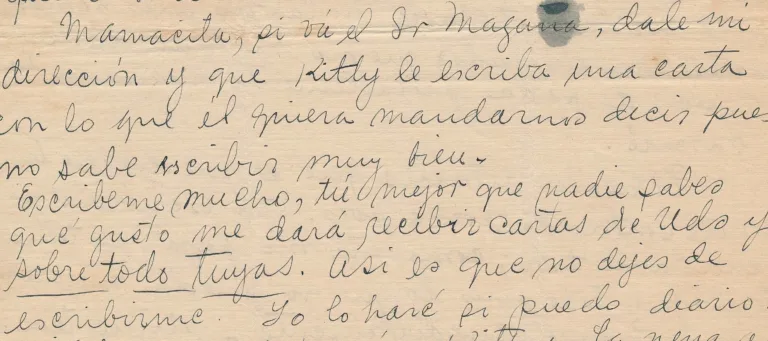 Mamacita, si vá el Sr Magaña, dale mi
dirección y que Kitty le escriba una carta
con lo que él quiera mandarnos decir pues
no sabe escribir muy bien.
Escribeme mucho, tú mejor que nadie sabes
qué gusto me dará recibir cartas de Uds y
sobre todo tuyas. Asi es que no dejes de
escribirme. Yo lo haré si puedo diario.
la nena